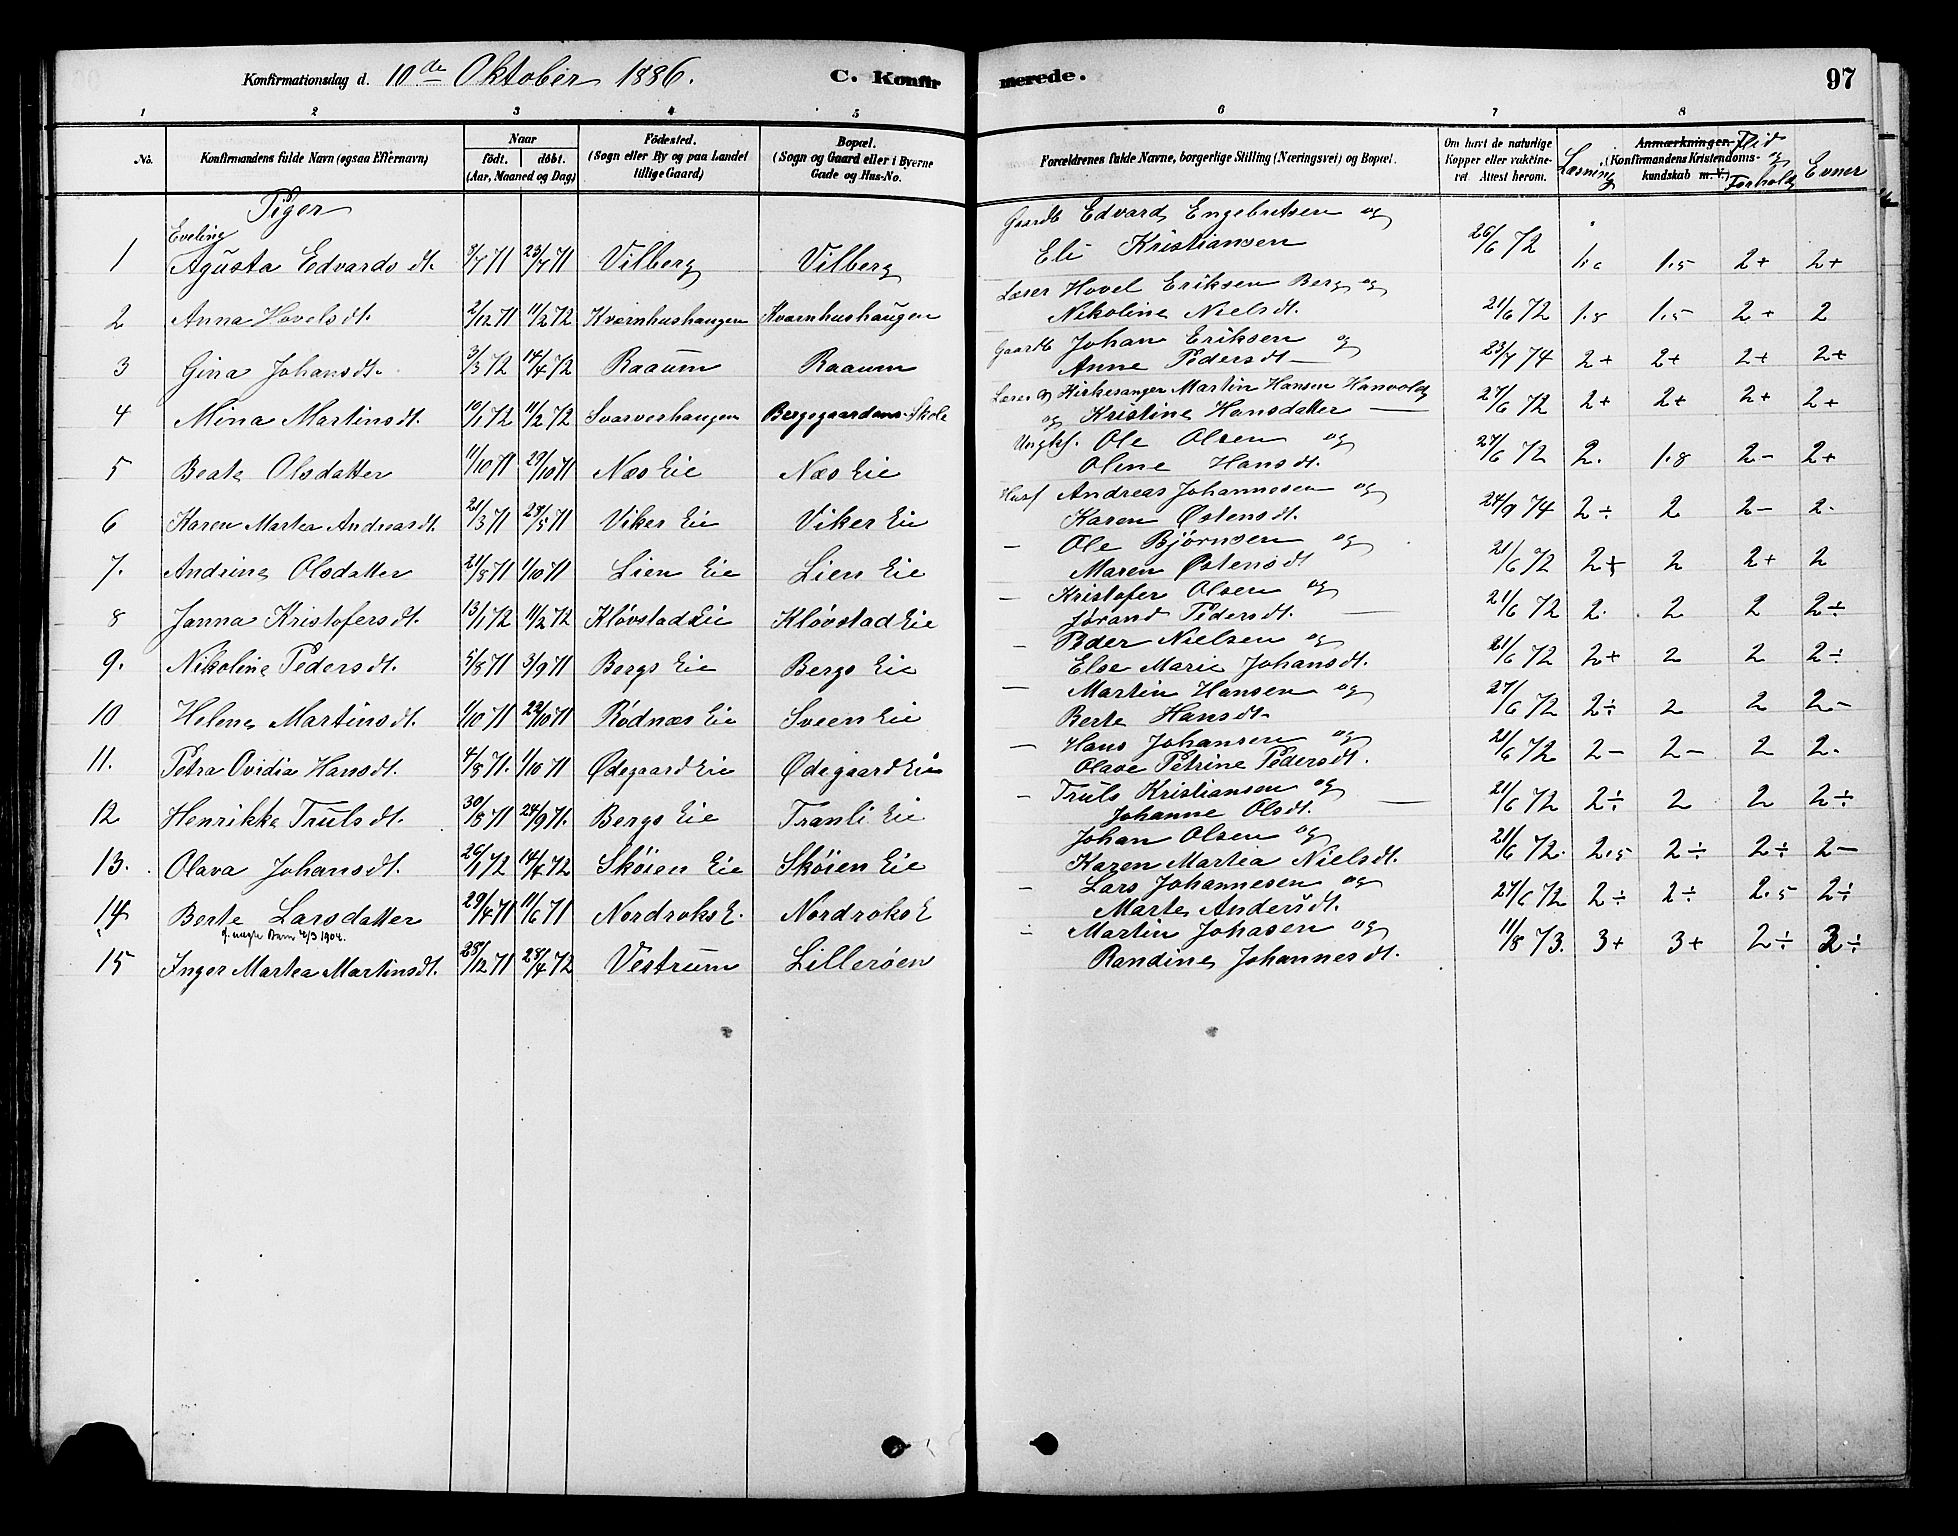 Konfirmationsdag d. 10de Oktober 1886. C. Konfirmerede. 97
1 2 3 4 5 6 7 8
No. Konfirmandens fulde Navn (ogsaa Efternavn) Naar födt. döbt. (Aar, Maaned og Dag) Födested. (Sogn eller By og paa Landet tillige Gaard) Bopæl. (Sogn og Gaard eller i Byerne Gade og Hus-No. Forældrenes fulde Navne, borgerlige Stilling (Næringsvei) og Bopæl. Om havt de naturlige Kopper eller vaktineret. Attest herom. Læsning Anmærkninger. (Konfirmandens Kristendomskundskab m. V.) Flid og Forhold Evner
Piger
1 Eveline Agusta Edvardsdt. 3/7 71 23/7 71 Vilberg Vilberg Gaardb Edvard Engebretsen og
Eli Kristiansen 26/6 72 1.5 2+ 2+
2 Anna Hovelsdt. 2/12 71 11/2 72 Kværnhushaugen Kværnhushaugen Lærer Hovel Eriksen Berg og
Nikoline Nielsdt. 21/6 72 1.8 1.5 2+ 2
3 Gina Johansdt. 3/3 72 14/4 72 Raaum Raaum Gaardb Johan Eriksen og
Anne Pedersdt 23/7 74 2+ 2+ 2+ 2+
4 Mina Martinsdt. 10/1 72 11/2 72 Svarveshaugen Bergegaardens Skole Lærer og Kirkesanger Martin Hansen Hanvold
og Kristine Hansdatter 27/6 72 2+ 2+ 2+ 2+
5 Beate Olsdatter 11/10 71 29/10 71 Næs Eie Næs Eie Ungkf. Ole Olsen og
Oline Hansdt. 27/6 72 2. 1.8 2- 2+
6 Karen Martea Andreasdt. 21/3 71 29/5 71 Viker Eie Viker Eie Husf Andreas Johannesen og
Karen Østensdt. 24/9 74 2÷ 2 2- 2.
7. Andrine Olsdatter 21/8 71 1/10 71 Lien Eie Lien Eie — Ole Bjørnsen og
Maren Østensdt 21/6 72 2+ 2 2+ 2
8 Janna Kristofersdt. 13/1 72 11/2 72 Kløvstad Eie Kløvstad Eie — Kristofer Olsen og
Jørand Pedersdt. 21/6 72 2. 2 2 2÷
9. Nikoline Pedersdt. 5/8 71 3/9 71 Bergs Eie Bergs Eie — Peder Nielsen og
Else Marie Johansdt. 21/6 72 2+ 2 2 2÷
10 Helene Martinsdt. 1/10 71 29/10 71 Rødnæs Eie Sveen Eie — Martin Hansen og
Berte Hansdt. 27/6 72 2÷ 2 2 2-
11. Petra Ovidia Hansdt. 4/8 71. 1/10 71 Ødegaard Eie Ødegaard Eie — Hans Johansen og
Olave Petrine Pedersdt. 21/6 72 2- 2- 2 2.
12 Henrikke Trulsdt. 30/8 71 24/9 71. Bergs Eie Tranli Eie — Truls Kristiansen og
Johanne Olsdt. 21/6 72 2÷ 2 2 2÷
13. Olava Johansdt. 26/1 72 14/4 72 Skøien Eie Skøien Eie Johan Olsen og
Karen Martea Nielsdt. 21/6 72. 2.5 2÷ 2÷ 2-
14 Berte Larsdatter 29/4 71 11/6 71 Nordroks E. Nordroks E — Lars Johannesen og
Marte Andersdt. 27/6 72 2÷ 2÷ 2.5 2÷
15 Inger Martea Martinsdt. 28/12 71 28/4 72 Vestrum Lillerøen — Martin Johasen og
Randine Johannesdt. 11/8 73. 3+ 3+ 2÷ 3÷